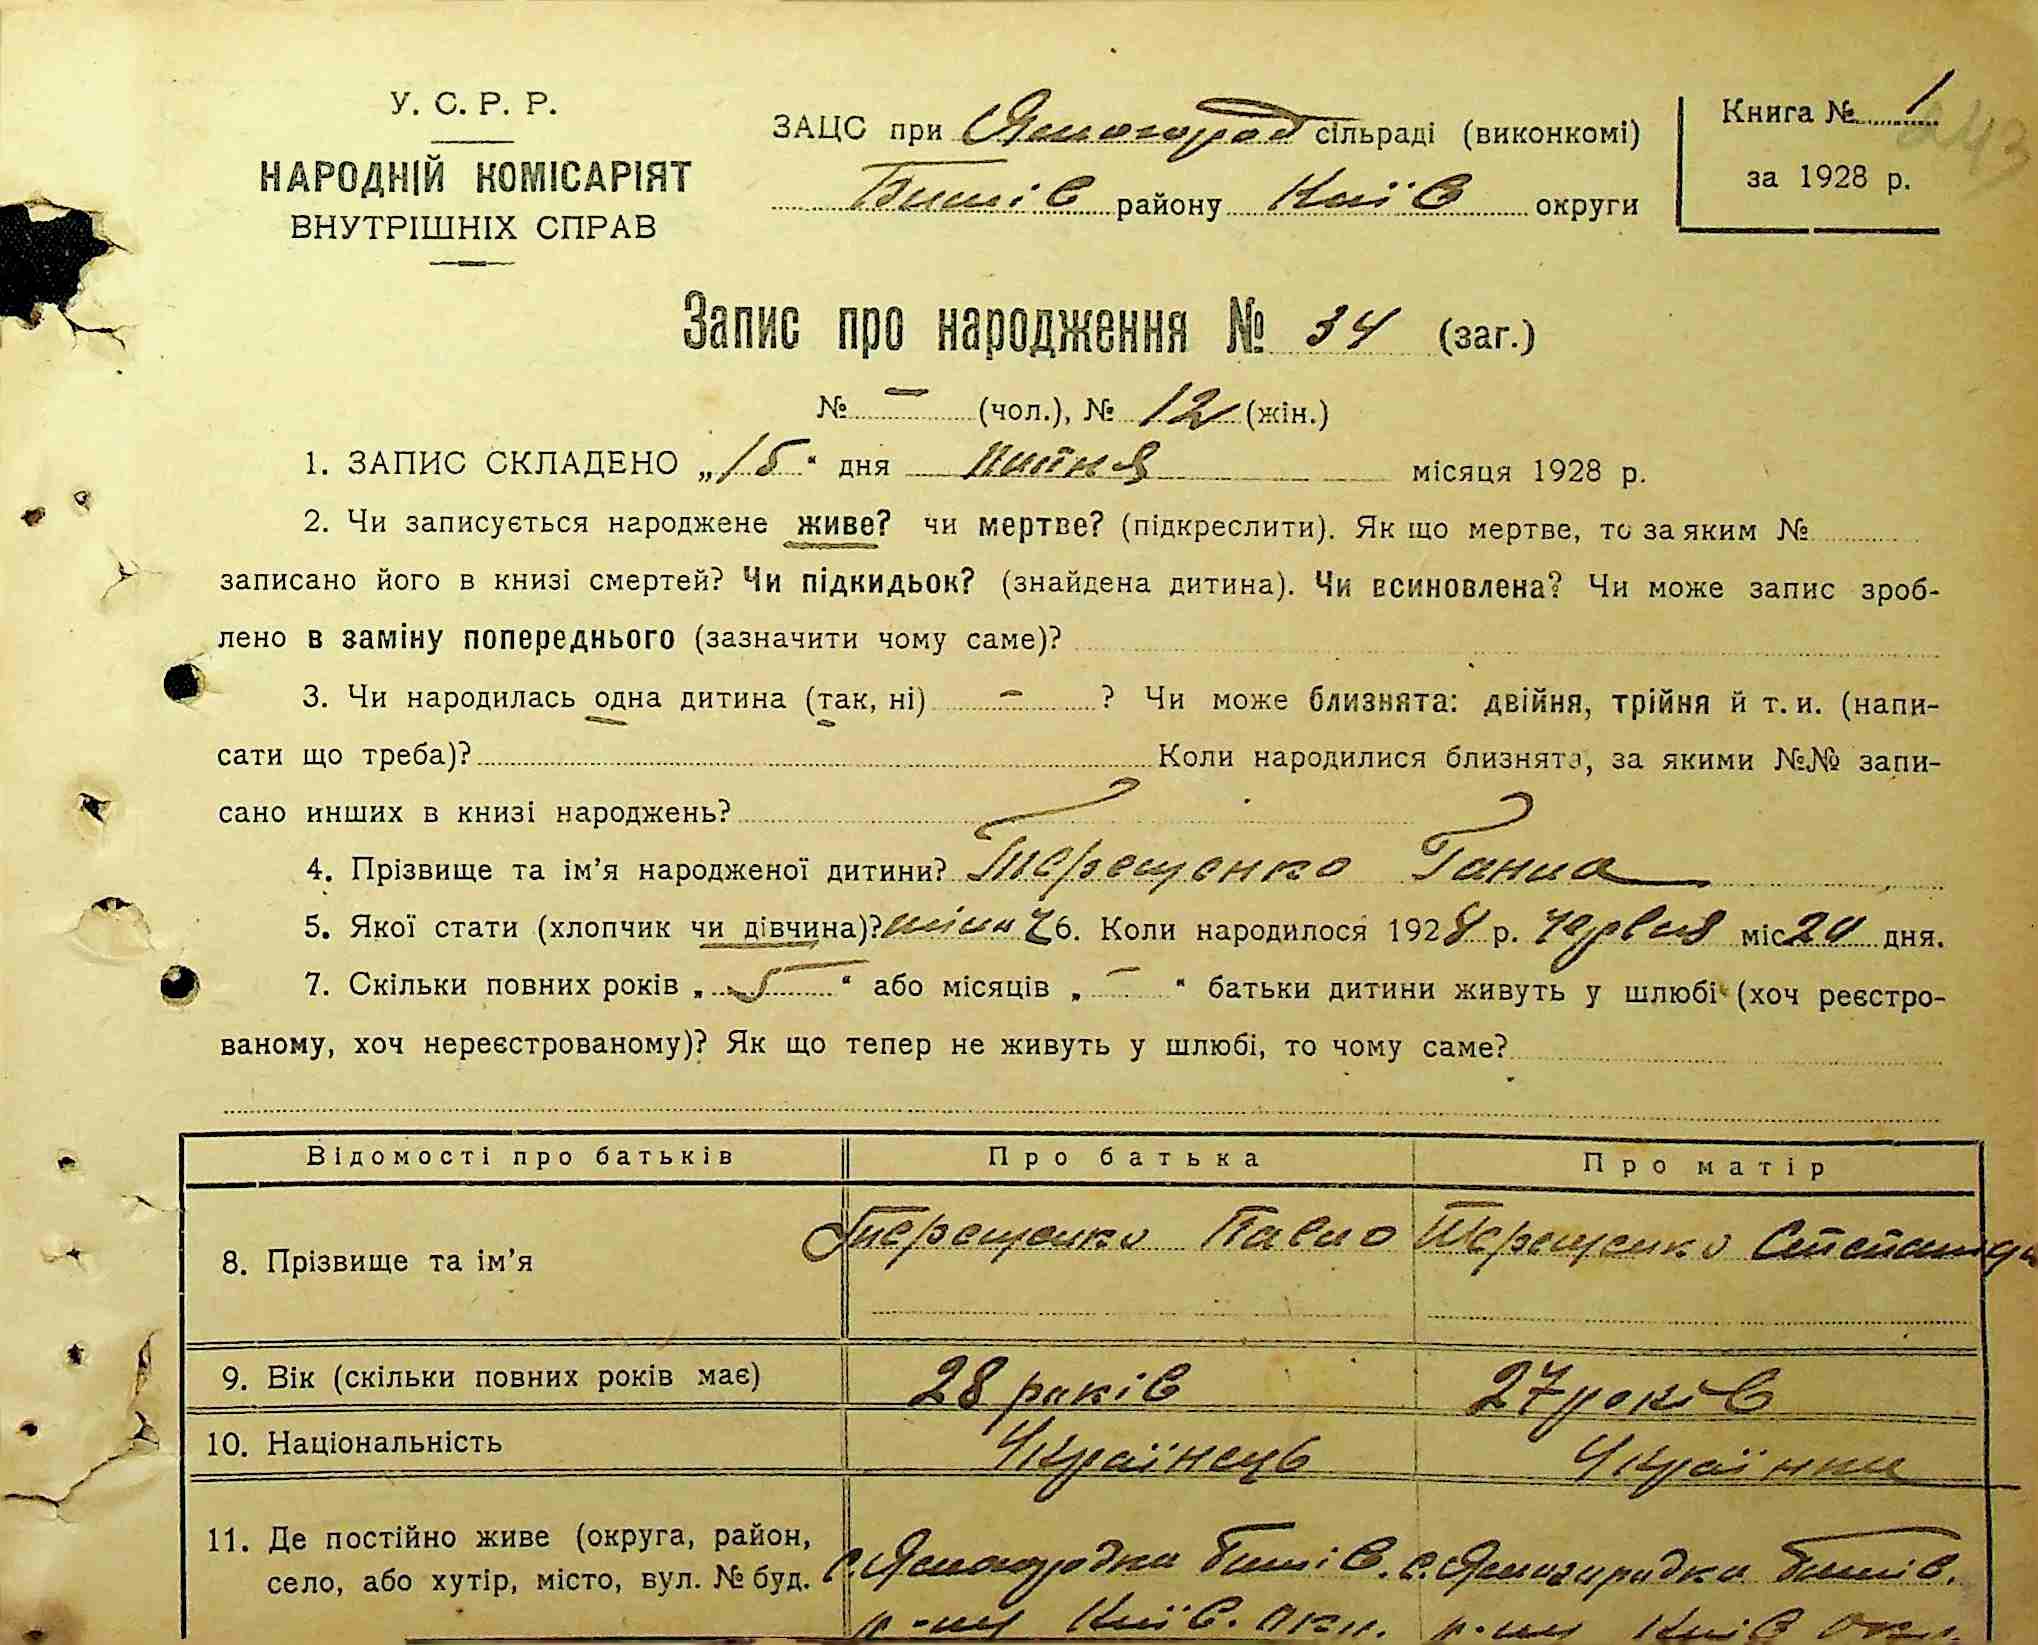 У. С. Р. Р.
НАРОДНІЙ КОМІСАРІЯТ
ВНУТРІШНІХ СПРАВ
ЗАЦС при Ясногород сільраді (виконкомі)
Бишів району Київ округи
Книга № 1
за 1928 р.
243
Запис про народження № 34 (заг.)
№ – (чол.), № 12 (жін.)
1. ЗАПИС СКЛАДЕНО „15“ дня липня місяця 1928 р.
2. Чи записується народжене живе? чи мертве? (підкреслити). Як що мертве, то за яким №
записано його в книзі смертей? Чи підкидьок? (знайдена дитина). Чи всиновлена? Чи може запис зроб-
лено в заміну попереднього (зазначити чому саме)?
3. Чи народилась одна дитина (так, ні) – ? Чи може близнята: двійня, трійня й т. и. (напи-
сати що треба)? Коли народилися близнята, за якими №№ запи-
сано инших в книзі народжень?
4. Прізвище та ім’я народженої дитини? Терещенко Ганна
5. Якої стати (хлопчик чи дівчина)? 6. Коли народилося 1928 р. червня міс 20 дня.
7. Скільки повних років „ 5 “ або місяців „ – “ батьки дитини живуть у шлюбі (хоч реєстро-
ваному, хоч нереєстрованому)? Як що тепер не живуть у шлюбі, то чому саме?
Відомості про батьків Про батька Про матір
8. Прізвище та ім’я Терещенко Павло Терещенко Степанида
9. Вік (скільки повних років має) 28 років 27 років
10. Національність Українець Українка
11. Де постійно живе (округа, район, с. Ясногородка Бишів. с. Ясногородка Бишів.
село, або хутір, місто, вул. № буд. р-ну Київ. окр. р-ну Київ окр.